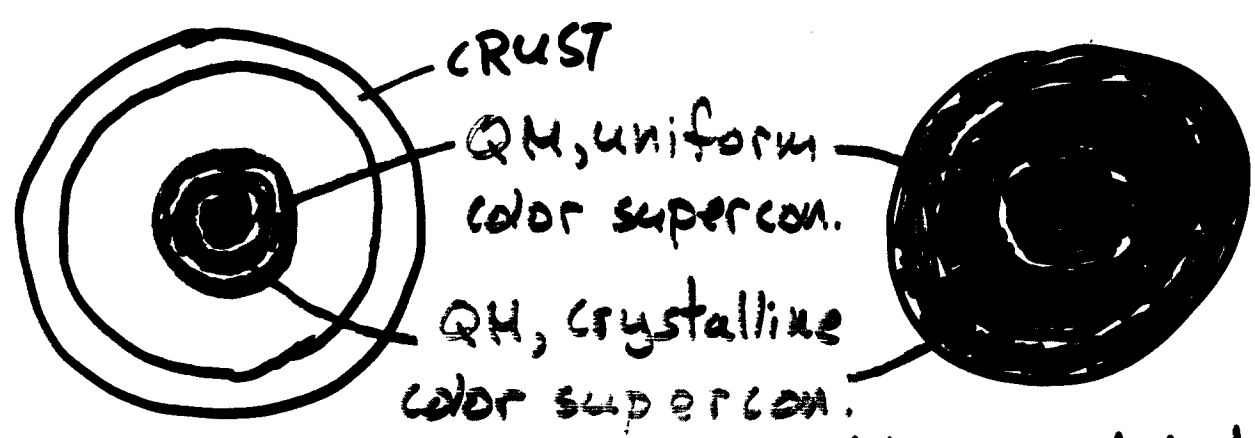 CRUST
QM, uniform
color supercon.
QM, crystalline
color supercon.